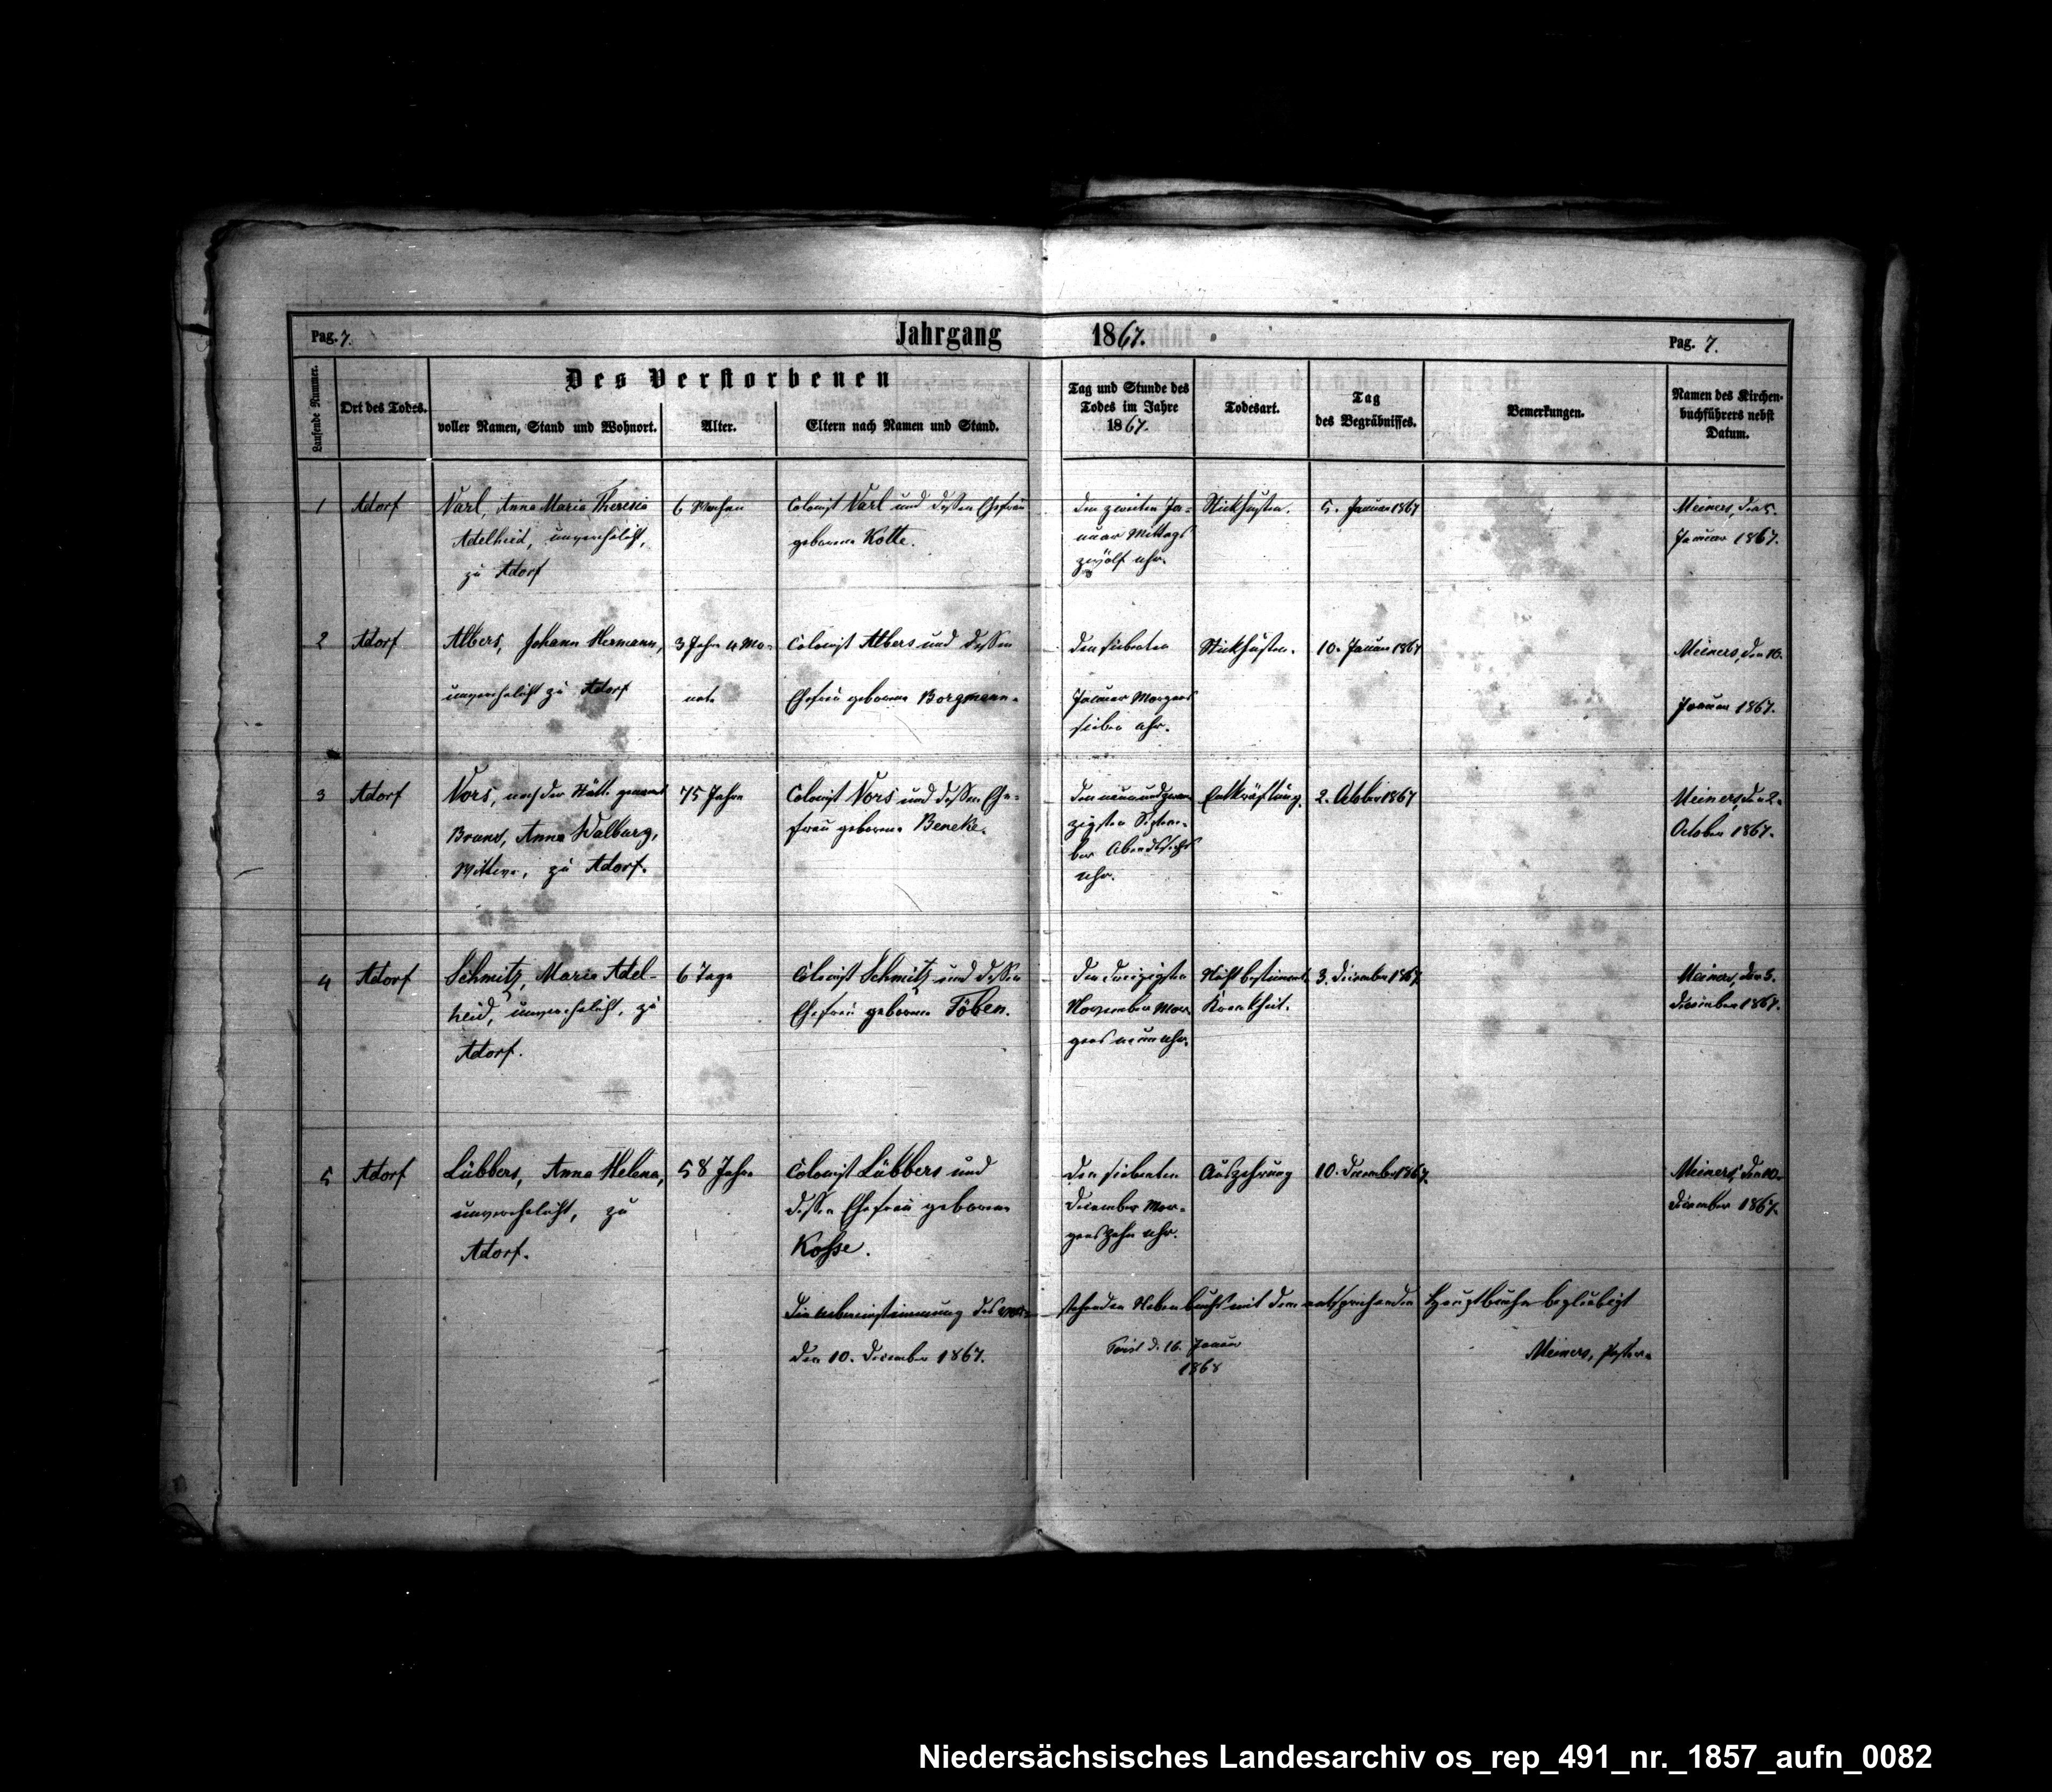 Pag. 7.
Jahrgang 1867.
Pag. 7.
Laufende Nummer.
Ort des Todes.
Des Verstorbenen
voller Namen, Stand und Wohnort.
Alter.
Eltern nach Namen und Stand.
Tag und Stunde des
Todes im Jahre
1867.
Todesart.
Tag
des Begräbnisses.
Bemerkungen.
Namen des Kirchen-
buchführers nebst
Datum.
1
Adorf
Varl, Anna Maria Theresia
Adelheid, unverehelicht,
zu Adorf
6 Wochen
Colonist Varl und dessen Ehefrau
geborene Kotte.
den zweiten Ja-
nuar Mittags
zwölf Uhr.
Stickhusten.
5. Januar 1867
Meiners, den 5.
Januar 1867.
2
Adorf
Albers, Johann Hermann,
unverehelicht zu Adorf
3 Jahre 4 Mo-
nate
Colonist Albers und dessen
Ehefrau geborene Borgmann.
den siebenten
Januar Morgens
sieben Uhr.
Stickhusten.
10. Januar 1867
Meiners, den 10.
Januar 1867.
3
Adorf
Vors, nach der Stätte genannt
Brand, Anna Walburg,
Wittwe, zu Adorf.
75 Jahre
Colonist Vors und dessen Ehe-
frau geborene Beneke.
den neunundzwan-
zigsten Septem-
ber Abends sechs
Uhr.
Entkräftung.
2. October 1867
Meiners, den 2.
October 1867.
4
Adorf
Schmitz, Maria Adel-
heid, unverehelicht, zu
Adorf.
6 Tage
Colonist Schmitz und dessen
Ehefrau geborene Töben.
den dreizigsten
November Mor-
gens neun Uhr.
Nicht bestimmte
Krankheit.
3. December 1867.
Meiners, den 3.
December 1867.
5
Adorf
Lübbers, Anna Helena,
unverehelicht, zu
Adorf.
58 Jahre
Colonist Lübbers und
dessen Ehefrau geborene
Kosse.
den siebenten
December Mor-
gens zehn Uhr.
Auszehrung
10. December 1867.
Meiners, den 10.
December 1867.
Die Uebereinstimmung des vor- stehenden Nebenbuchs mit dem entsprechenden Hauptbuche beglaubigt
den 10. December 1867.
Twist d. 16. Januar
1868
Meiners, Pastor.
Niedersächsisches Landesarchiv os_rep_491_nr._1857_aufn_0082